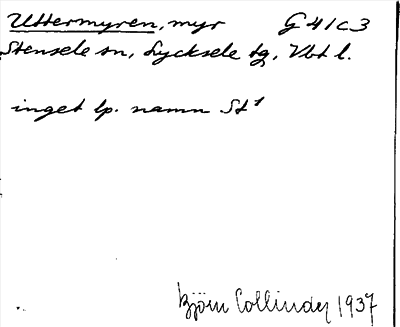 Uttermyren, myr G 41 c 3
Stensele sn, Lycksele tg, Vbt l.
inget lp. namn St¹
Björn Collinder 1937